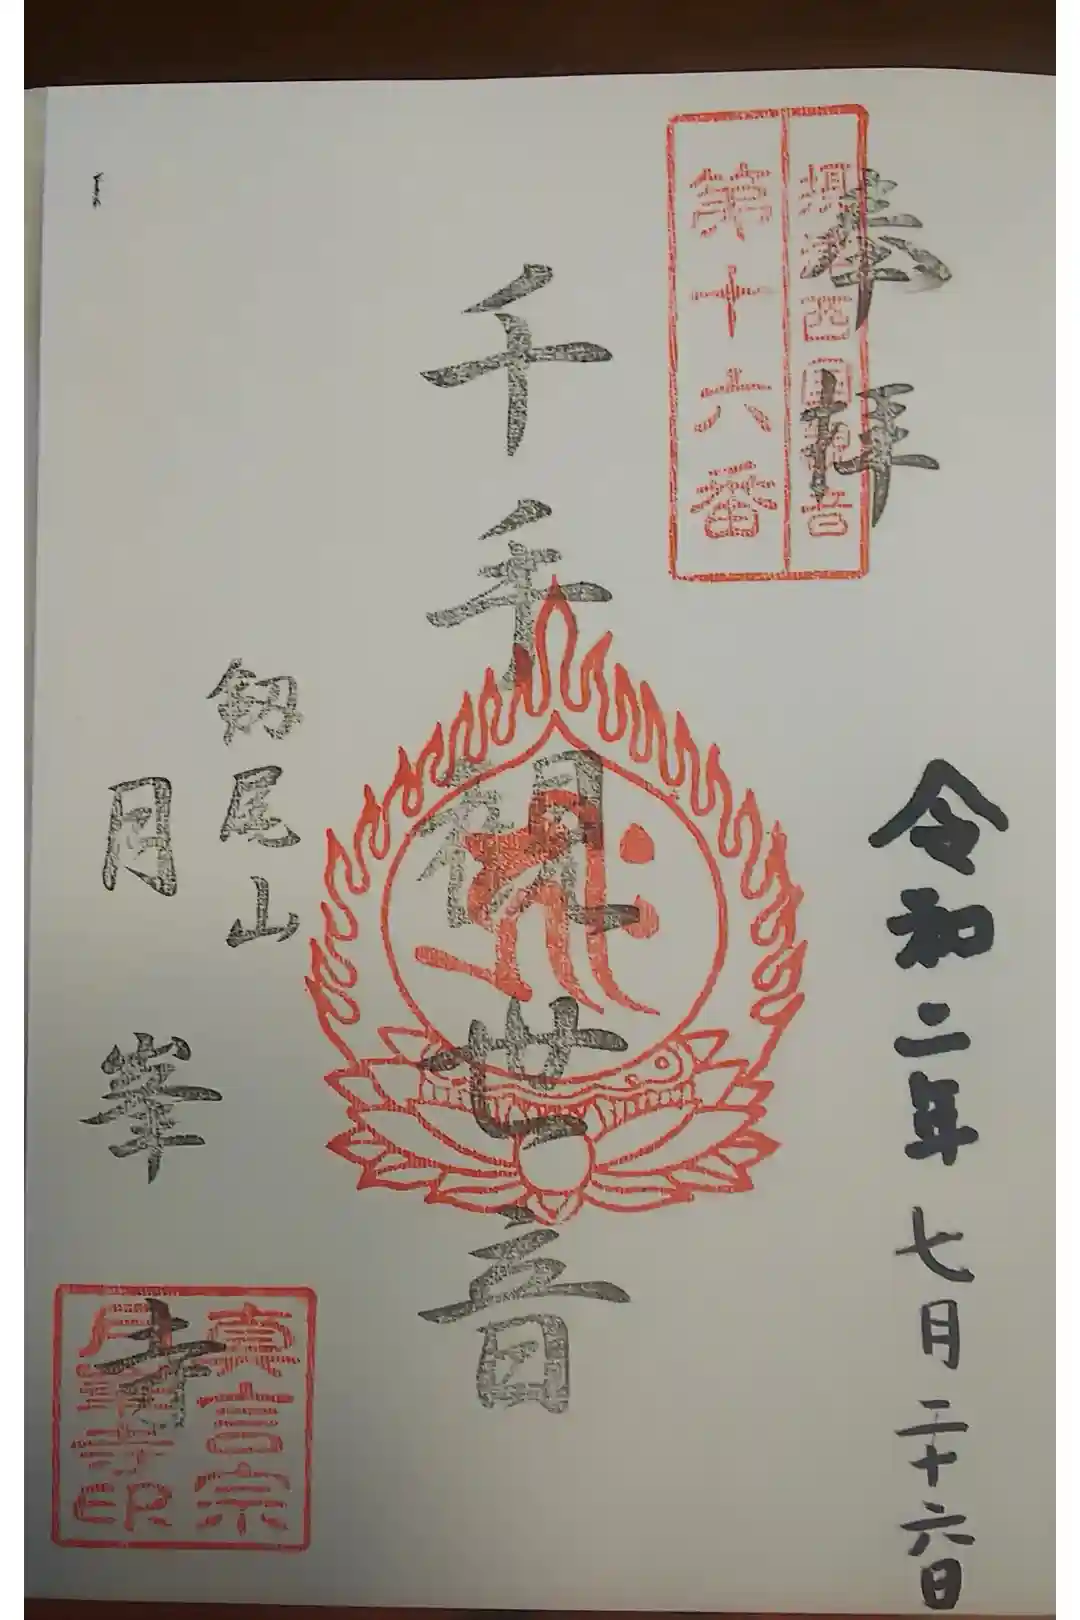 奉拝
西國観音
第十六番
令和二年七月二十六日
千手観世音
釼尾山
月峯寺
真言宗
月峯寺印